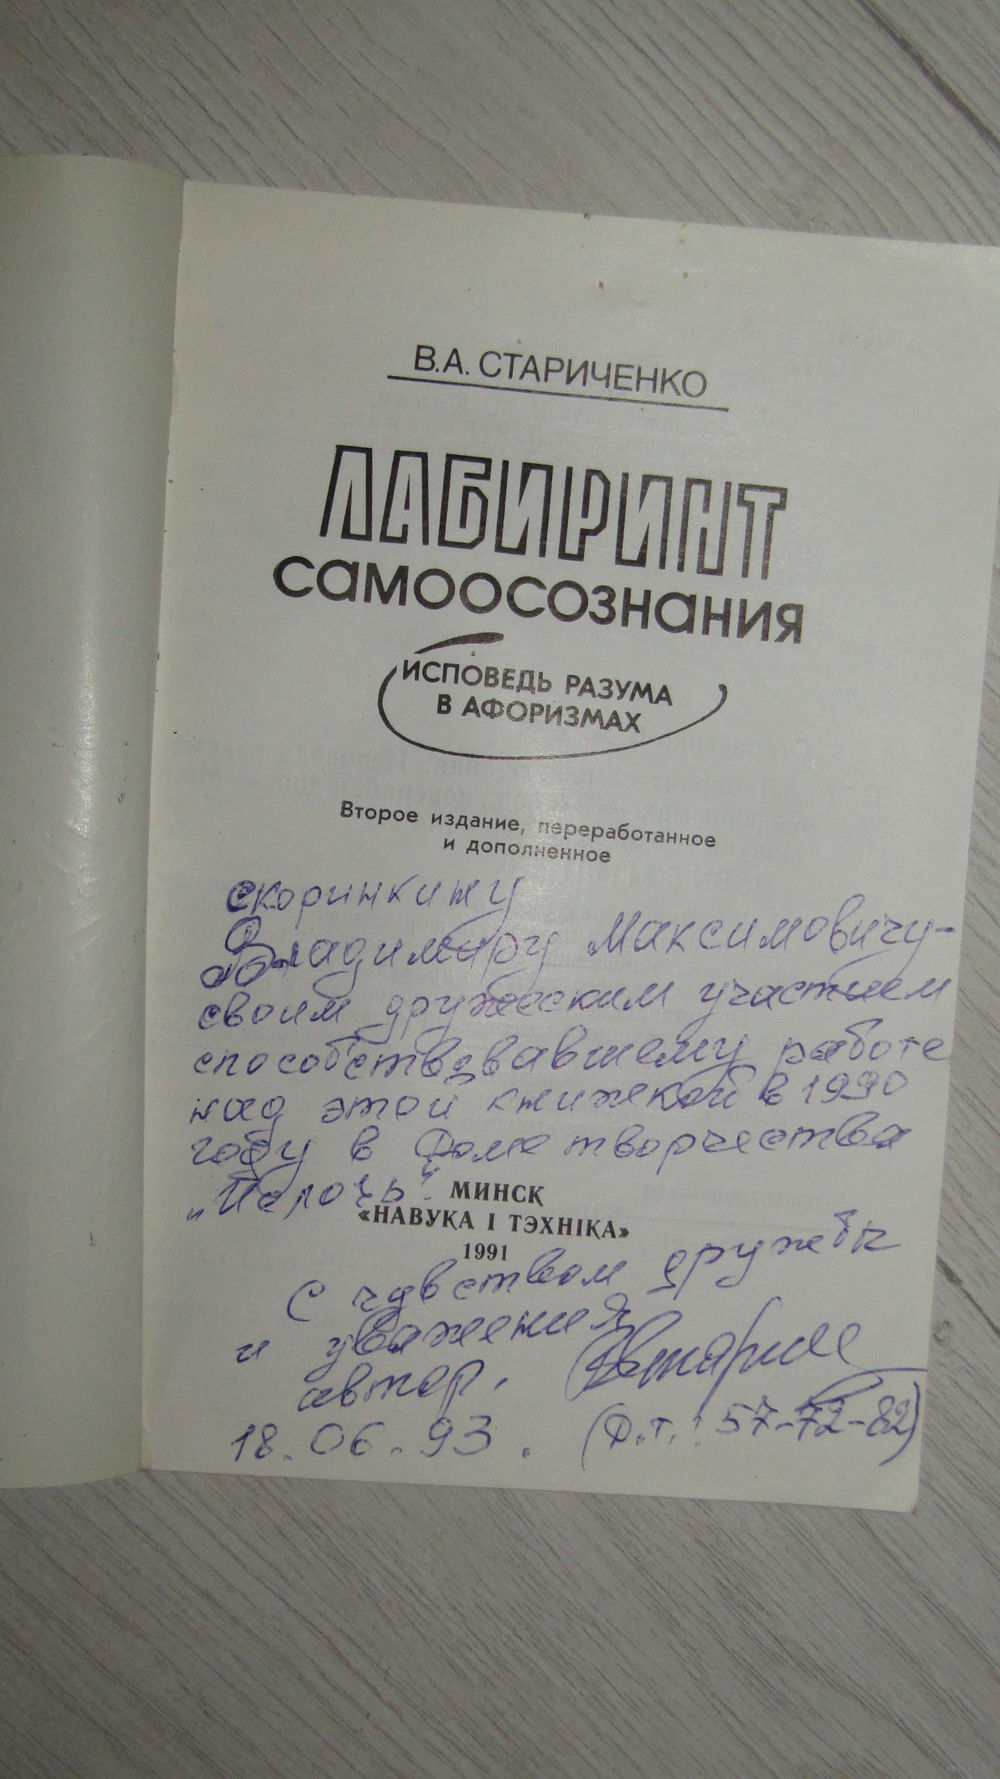 В.А. СТАРИЧЕНКО
ЛАБИРИНТ
САМООСОЗНАНИЯ
ИСПОВЕДЬ РАЗУМА
В АФОРИЗМАХ
Второе издание, переработанное
и дополненное
Скоринкину
Владимиру Максимовичу-
своим дружеским участием
способствовавшему работе
над этой книжекой в 1990
году в Доме творчества
„Ислочь".
МИНСК
«НАВУКА І ТЭХНІКА»
1991
С чувством дружбы
и уважения
автор.
18.06.93. (Д.т.: 57-72-82)